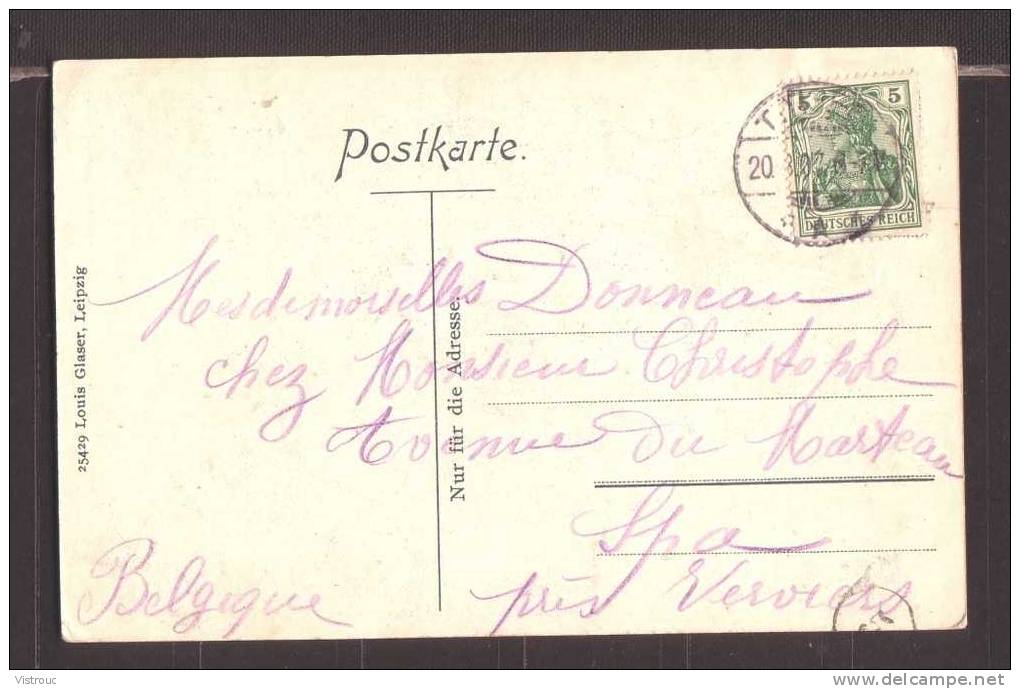 Postkarte.
5 5
DEUTSCHES REICH
20.
Mesdemoiselles Donneau
chez Monsieur Christophe
Avenue du Marteau
Spa
près Verviers
Belgique
Nur für die Adresse.
25429 Louis Glaser, Leipzig
Vistrouc
delcampe.net